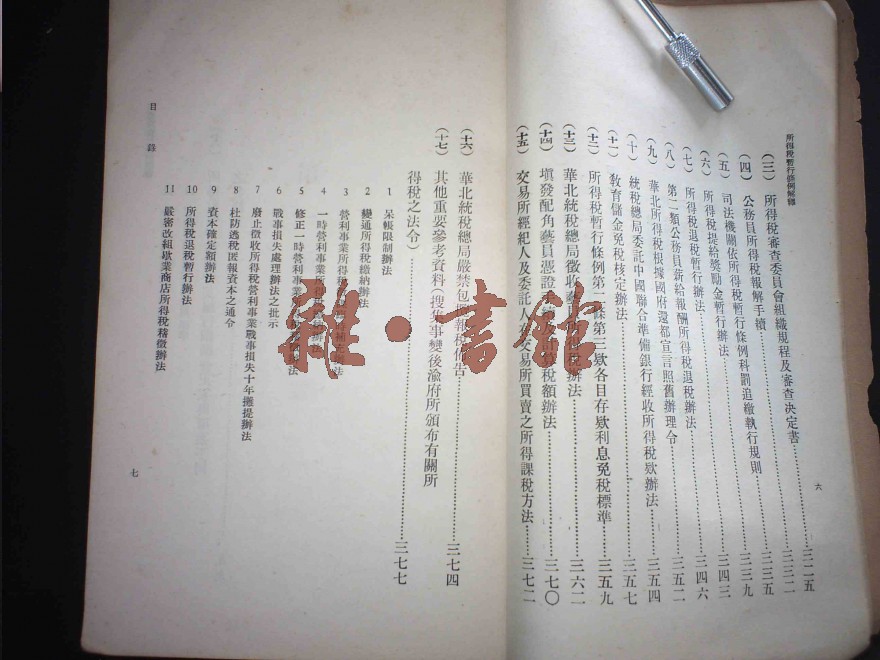 所得稅暫行條例解釋
(三) 所得稅審查委員會組織規程及審查決定書……三二五
(四) 公務員所得稅報解手續……
(五) 司法機關依所得稅暫行條例科罰追繳執行規則……三三五
(六) 所得稅提給獎勵金暫行辦法……三三九
(七) 所得稅退稅暫行辦法……三四三
(八) 第二類公務員薪給報酬所得稅退稅辦法……三四六
(九) 華北所得稅根據國府還都宣言照舊辦理令……三五二
(十) 統稅總局委託中國聯合準備銀行經收所得稅款辦法……三五四
(十一) 教育儲金免稅核定辦法……三五七
(十二) 所得稅暫行條例第二條第三款各目存款利息免稅標準……三五九
(十三) 華北統稅總局徵收 稅辦法……三六二
(十四) 填發配角藝員憑證 算稅額辦法……三七〇
(十五) 交易所經紀人及委託人 交易所買賣之所得課稅方法……三七二
六
(十六) 華北統稅總局嚴禁包 報稅佈告……三七四
(十七) 其他重要參考資料(搜集事變後渝府所頒布有關所
得稅之法令)……三七七
1 呆帳限制辦法
2 變通所得稅繳納辦法
3 營利事業所得稅 辦法
4 一時營利事業所得 辦法
5 修正一時營利事業 辦法
6 戰事損失處理辦法之批示
7 廢止徵收所得稅營利事業戰事損失十年攤提辦法
8 杜防逃稅匿報資本之通令
9 資本確定額辦法
10 所得稅退稅暫行辦法
11 嚴密改組歇業商店所得稅稽徵辦法
目錄
七
雜·書館